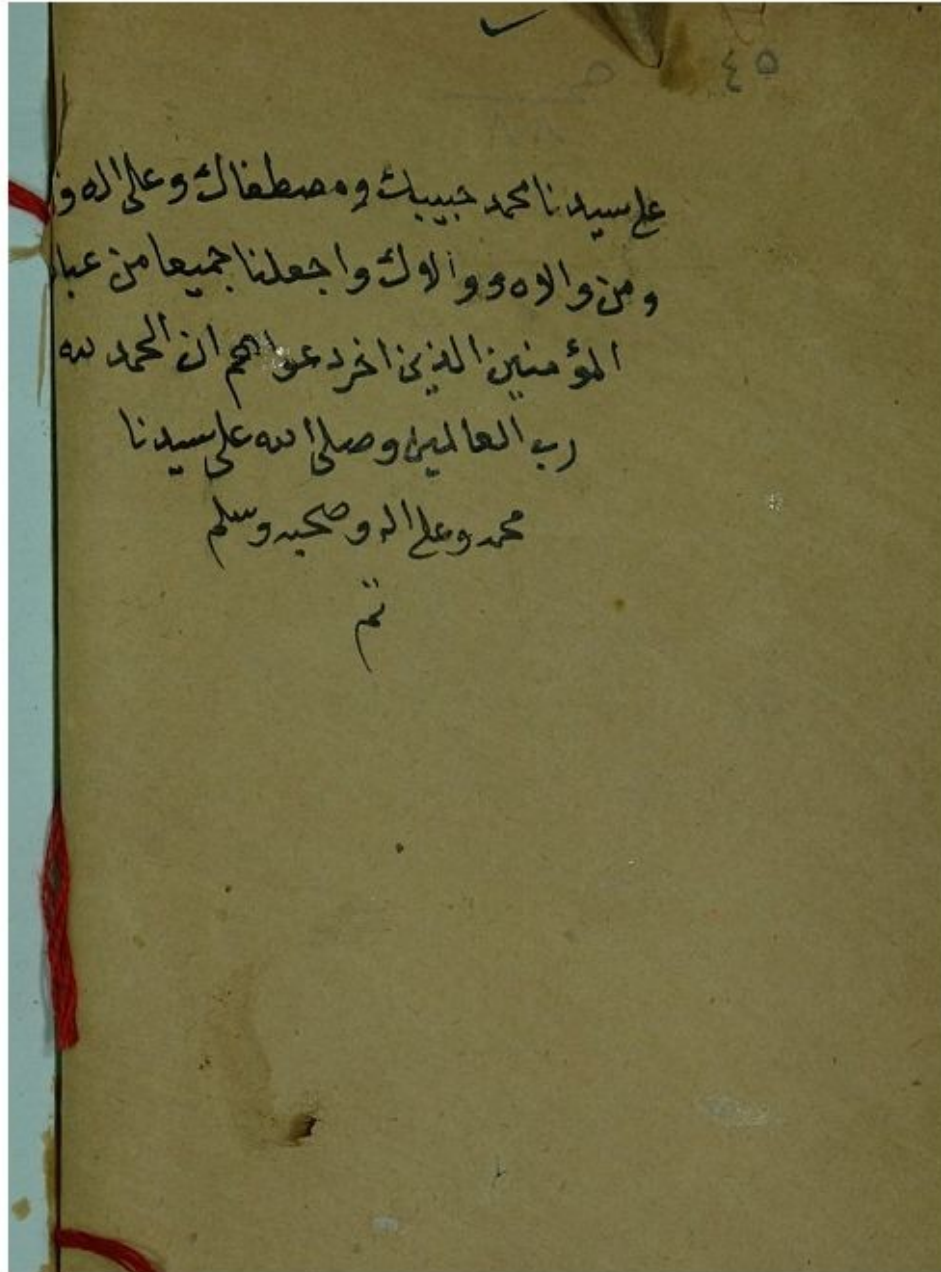 ٤٥
على سيدنا محمد حبيبك ومصطفاك وعلى اله و
ومن والاه ووالاك واجعلنا جميعا من عبا
المؤمنين الذين اخر دعواهم ان الحمد لله
رب العالمين وصلى الله على سيدنا
محمد وعلى اله وصحبه وسلم
تم